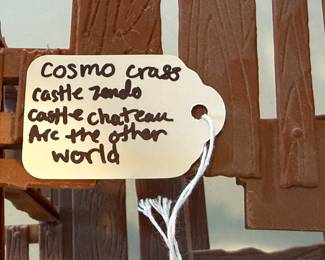 Cosmo Crass
castle zando
castle chateau
Arc the other
world